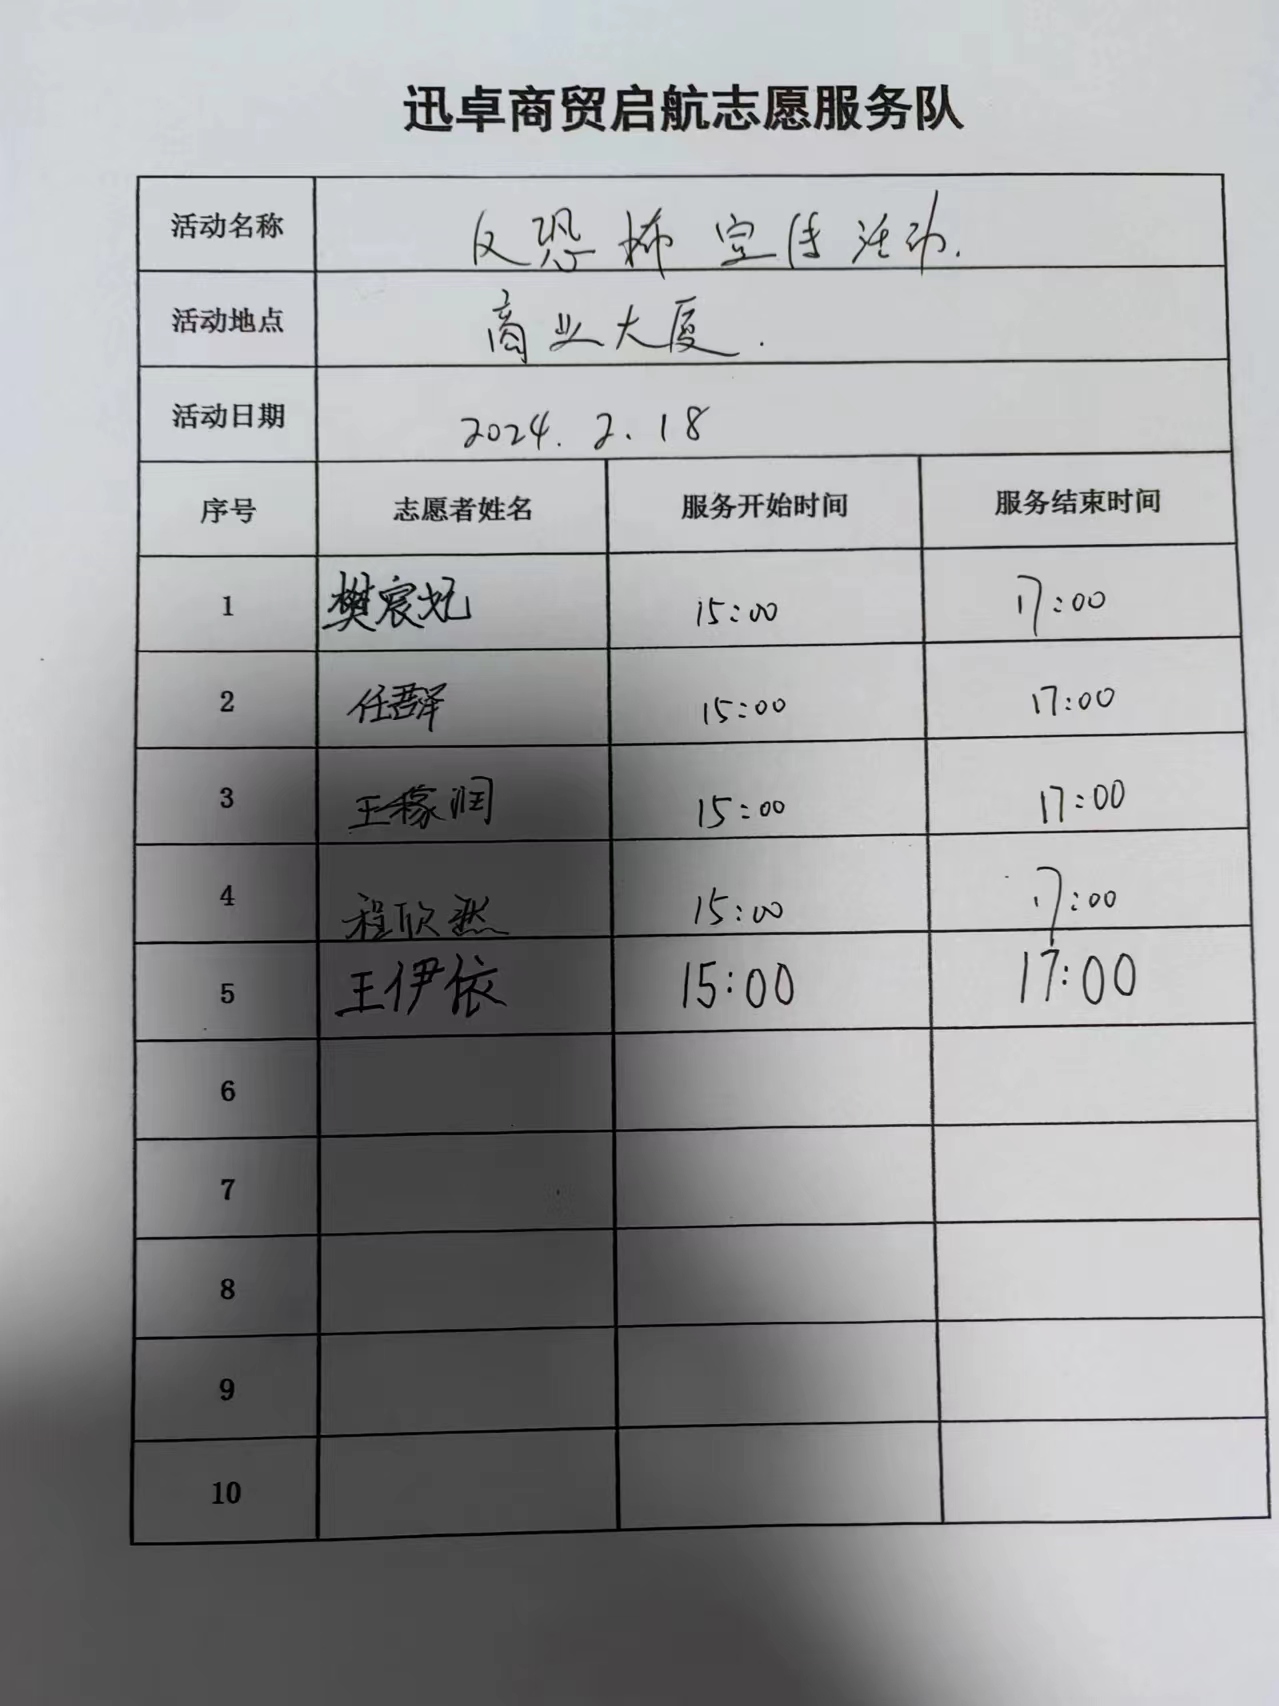 迅卓商贸启航志愿服务队
活动名称 反恐怖宣传活动.
活动地点 商业大厦.
活动日期 2024.2.18
序号 志愿者姓名 服务开始时间 服务结束时间
1 樊宸妃 15:00 17:00
2 任君泽 15:00 17:00
3 王稼润 15:00 17:00
4 程欣然 15:00 17:00
5 王伊依 15:00 17:00
6
7
8
9
10